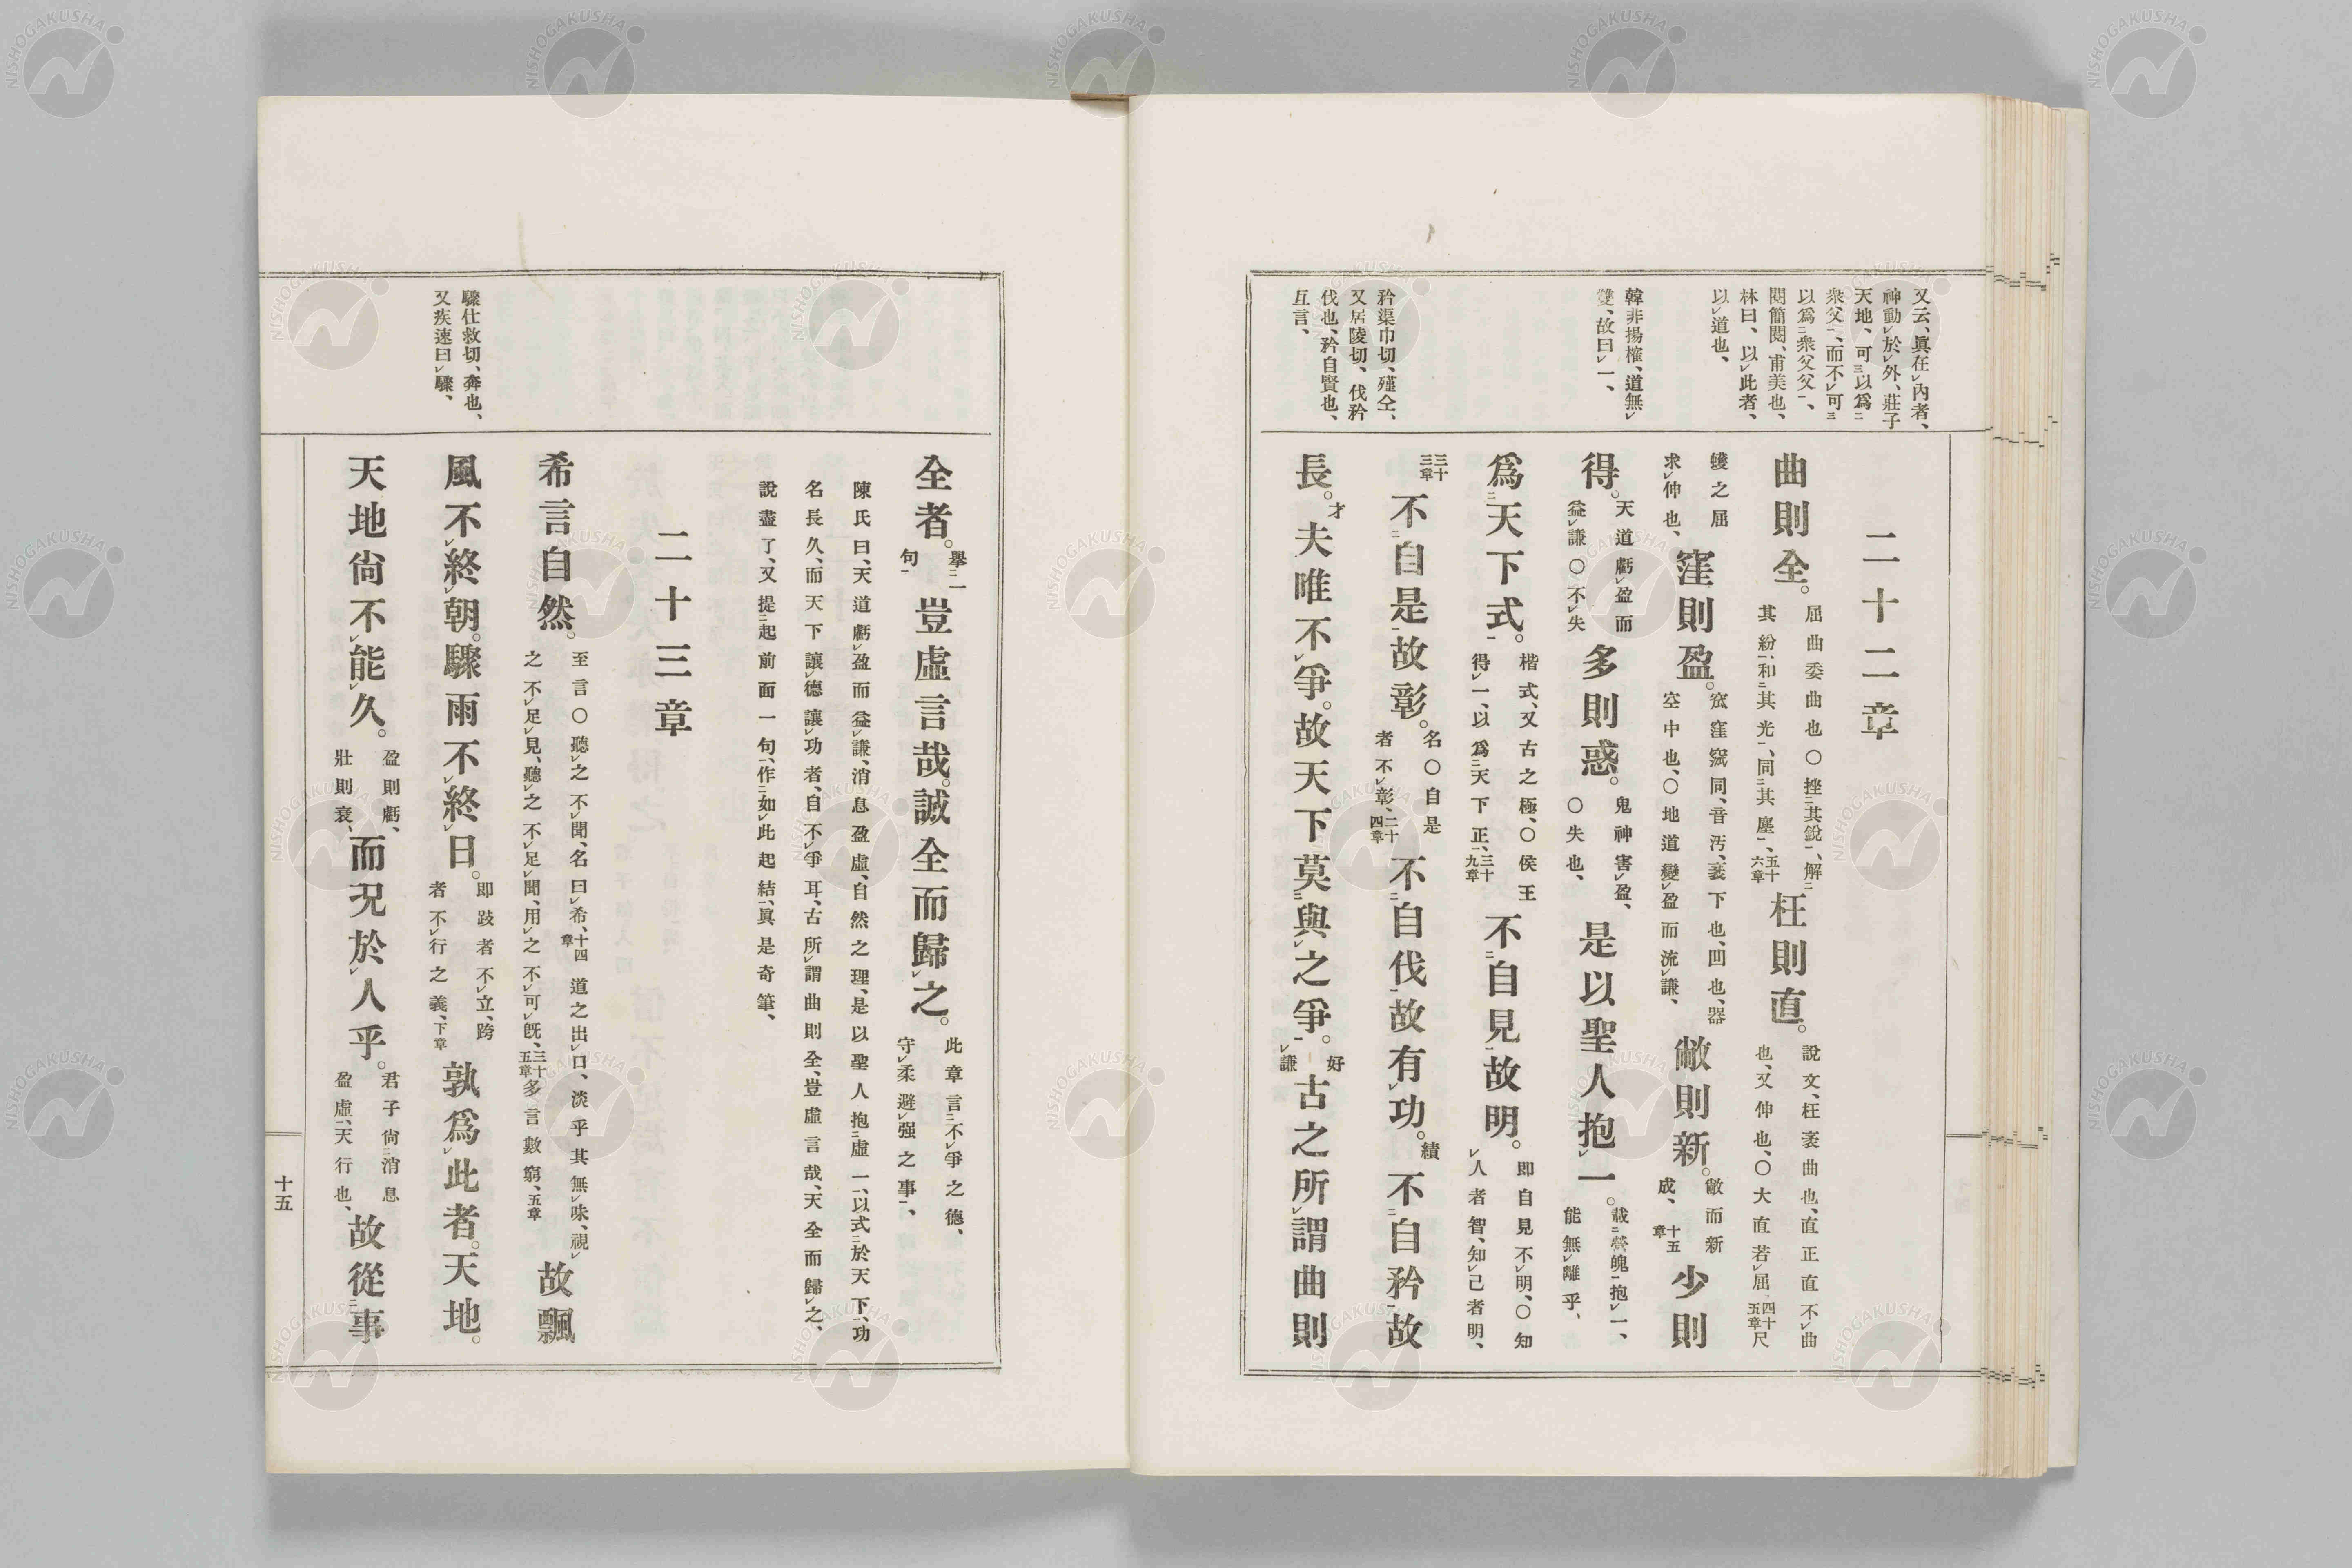 又云、眞在內者、
神動於外、莊子
天地、可以爲
衆父、而不可
以爲衆父父、
閱簡閱、甫美也、
林曰、以此者、
以道也、
韓非揚榷、道無
雙、故曰一、
矜渠巾切、殣仝、
又居陵切、伐矜
伐也、矜自賢也、
互言、
二十二章
曲則全。屈曲委曲也〇挫其銳、解其紛、和其光、同其塵、五十六章枉則直。說文、枉衺曲也、直正直不曲也、又伸也、〇大直若屈、四十五章尺
蠖之屈求伸也、窪則盈。窊窪窳同、音污、衺下也、凹也、器空中也、〇地道變盈而流謙、敝則新。敝而新成、十五章少則
得。天道虧盈而益謙〇不失多則惑。鬼神害盈、〇失也、是以聖人抱一。載營魄抱一、能無離乎、
爲天下式。楷式、又古之極、〇侯王得一、以爲天下正、三十九章不自見故明。卽自見不明、〇知人者智、知己者明、
三十三章不自是故彰。名〇自是者不彰、二十四章不自伐故有功。績不自矜故
長。才夫唯不爭。故天下莫與之爭。好謙古之所謂曲則
全者。擧一句豈虛言哉。誠全而歸之。此章言不爭之德、守柔避强之事、
陳氏曰、天道虧盈而益謙、消息盈虛、自然之理、是以聖人抱虛一、以式於天下、功
名長久、而天下讓德讓功者、自不爭耳、古所謂曲則全、豈虛言哉、天全而歸之、
說盡了、又提起前面一句、作如此起結、眞是奇筆、
二十三章
驟仕救切、奔也、
又疾速曰驟、
希言自然。至言〇聽之不聞、名曰希、十四章道之出口、淡乎其無味、視之不足見、聽之不足聞、用之不可旣、三十五章多言數窮、五章故飄
風不終朝。驟雨不終日。卽跂者不立、跨者不行之義、下章孰爲此者。天地。
天地尙不能久。盈則虧、壯則衰、而况於人乎。君子尙消息盈虛、天行也、故從事
十五
NISHOGAKUSHA